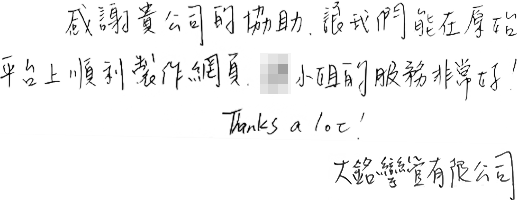 感謝貴公司的協助.讓我們能在原始
平台上順利製作網頁. 小姐的服務非常好!
Thanks a lot!
大銘彎管有限公司